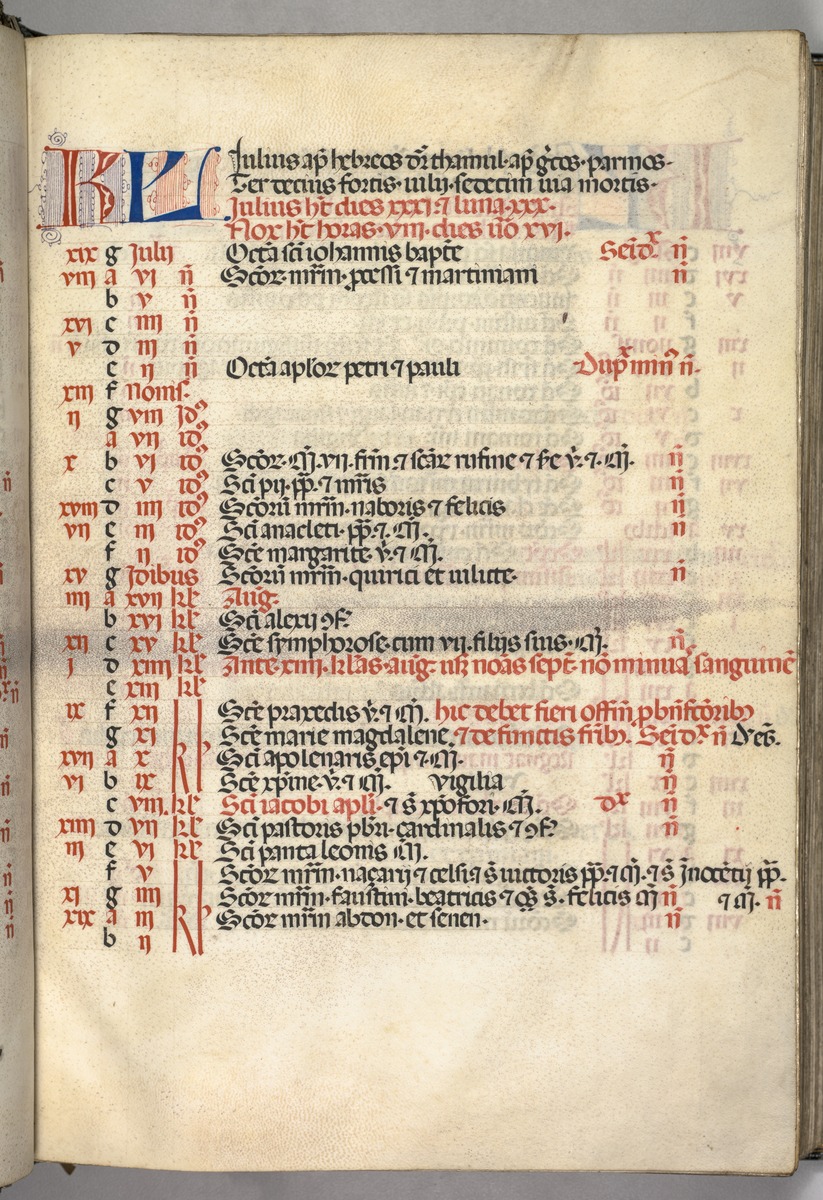 KL Iulius ap̄ hebreos dr̄ thamul · ap̄ gͨos · parmos ·
Ter decius fortis · iulij · sedecim ꝛuia mortis ·
Julius hr̄t dies xxxi ⁊ luna · xxx ·
Nox hr̄t horas · viii · dies ūo xvi ·
xix g Julij Octā scī iohannis baptē Semidx n̄
viii a vi n̄ Scōr mr̄m · ꝓcessi ⁊ martiniani n̄
b v n̄
xvi c iiii n̄
v d iii n̄
e ii n̄ Octā aplōr petri ⁊ pauli Dupx min n̄ ·
xiii f Noms ·
ii g viii Idꝰ
a vii idꝰ
x b vi idꝰ Scōr · M̄ · vii · fr̄m ⁊ scār rufine ⁊ ſcē v̄ · ⁊ · M̄ · n̄
c v idꝰ Scī pij · pp̄ · ⁊ mr̄is n̄
xviii d iiii idꝰ Scōrū mr̄m · naboris ⁊ felicis n̄
vii e iii idꝰ Scī anacleti · pp̄ · ⁊ · M̄ · n̄
f ii idꝰ Scē margarite · v̄ · ⁊ M̄ ·
xv g Idibus Scōrū mr̄m · quirici et iulicte · n̄
iiii a xvii kl̄ Aug ·
b xvi kl̄ Scī alexij ꝯf
xii c xv kl̄ Scē symphorose · cum vii · filijs suis · M̄ · n̄
i d xiiii kl̄ Ante · xiiii · kl̄as · aug · usꝫ noās sept̄ nō minuāt̄ sanguinē
e xiii kl̄
ix f xii Kl Scē praxedis v̄ · ⁊ M̄ · hic debet fieri offm̄ ꝓ bn̄fc̄oribꝫ
g xi Scē marie magdalene ⁊ defunctis frībꝫ · Semidx n̄
xvii a x Scī apolenaris ep̄i ⁊ M̄ · n̄
vi b ix Scē xp̄ine · v̄ · ⁊ M̄ · vigilia n̄
c viii · kl̄ Scī iacobi apli · ⁊ s̄ xp̄ofori · M̄ · dx n̄
xiiii d vii kl̄ Scī pastoris pbr̄i · cardinalis ⁊ ꝯf n̄
iii e vi kl̄ Scī pantaleonis M̄ ·
f v Kl Scōr mr̄m · naçarij ⁊ celsi ⁊ s̄ victoris pp̄ ⁊ M̄ · ⁊ s̄ Inocētij pp̄ ·
xi g iiii Scōr mr̄m · faustini · beatricis ⁊ s̄ · felicis M̄ n̄ ⁊ M̄ · n̄
xix a iii Scōr mr̄m abdon · et senen · n̄
b ii